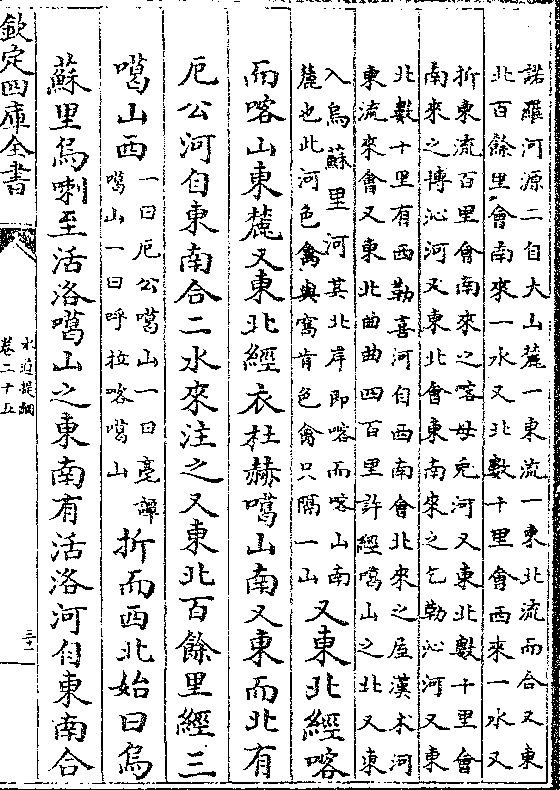 諾羅河源二自大山麓一東流一東北流而合又東
北百餘里會南來一水又北數十里會西來一水又
折東流百里會南來之喀母克河又東北數十里會
南來之博沁河又東北會東南來之乞勒沁河又東
北數十里有西勒喜河自西南會北來之厔漢木河
東流來會又東北曲曲四百里許經噶山之北又東
入烏蘇里河其北岸即喀而喀山南
麓也此河色禽與窩肯色禽只隔一山
又東北經喀
而喀山東麓又東北經衣杜赫噶山南又東而北有
厄公河自東南合二水來注之又東北百餘里經三
噶山西
一曰厄公噶山一曰亳譚
噶山一曰呼拉喀噶山
折而西北始曰烏
蘇里烏喇至活洛噶山之東南有活洛河自東南合
欽定四庫全書
水道提綱
卷二十五